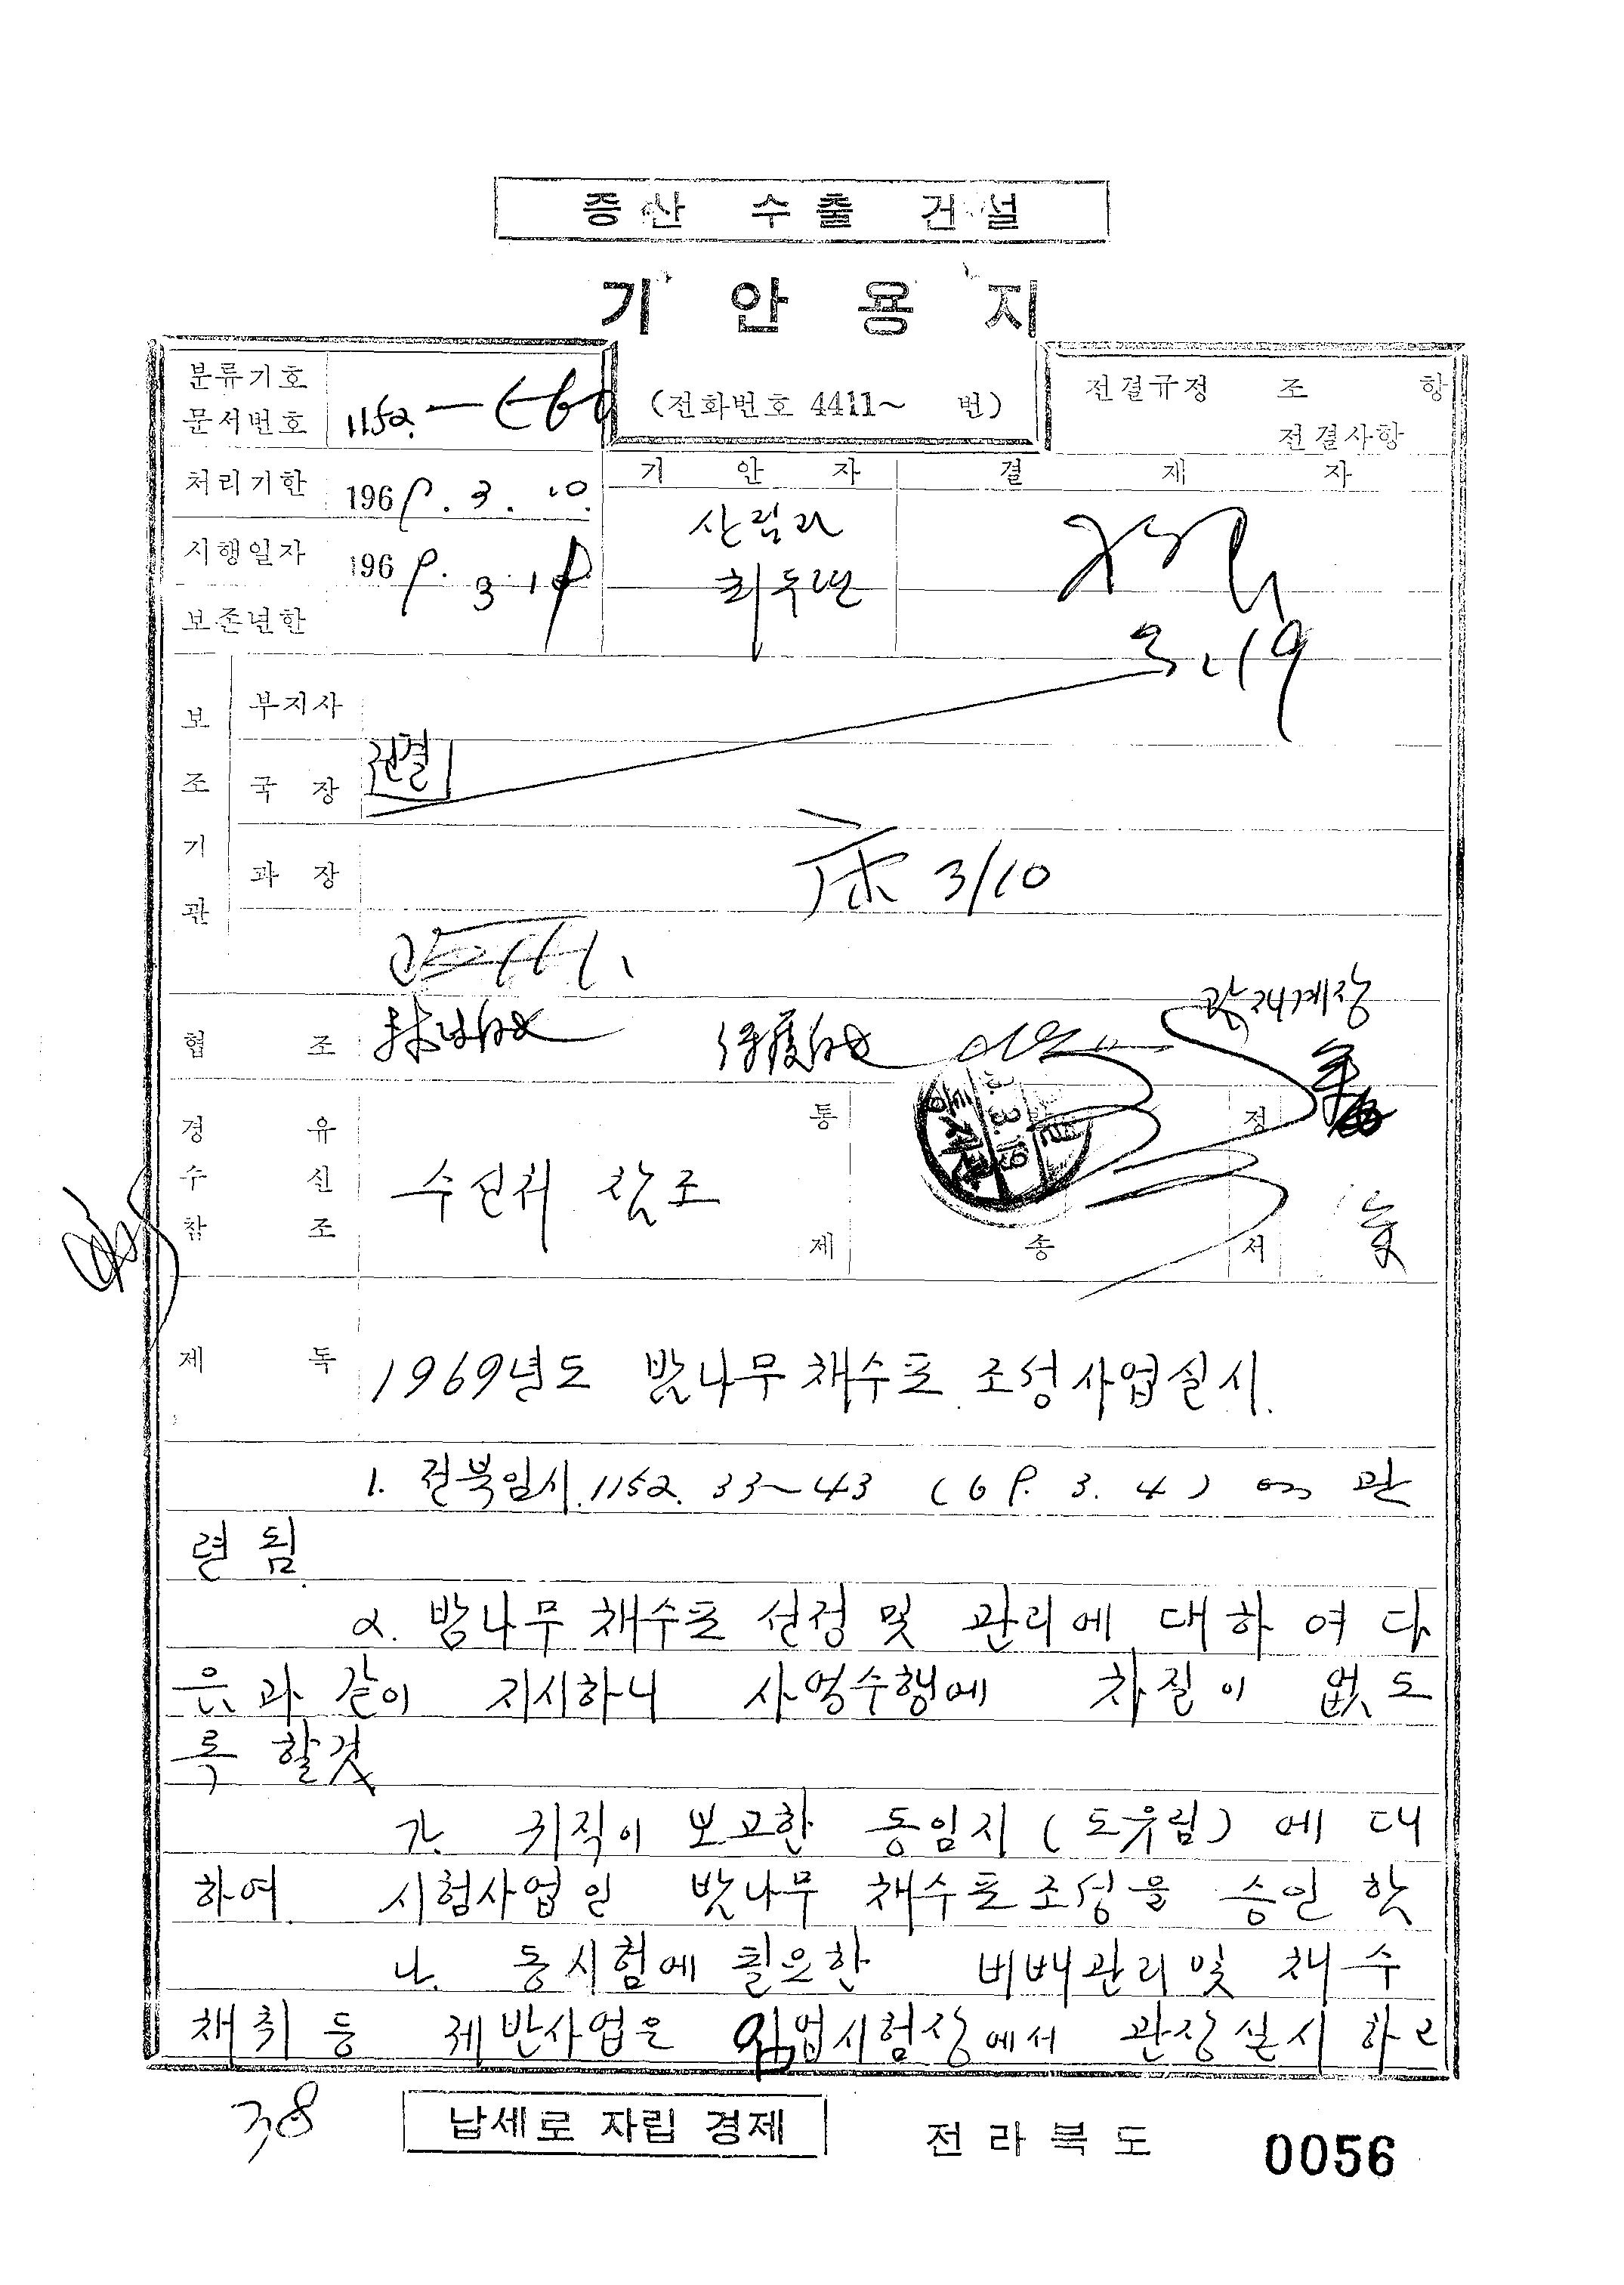 증산 수출 건설
기 안 용 지
분류기호
문서번호 1152.—
(전화번호 4411~ 번)
전결규정 조 항
전결사항
처리기한 1969. 3. 10.
기 안 자
결 재 자
시행일자 1969. 3. 19
산림과
보존년한
3.19
보 조 기 관
부지사
국 장 전결
과 장
3/10
협 조
경 유
수 신 수신처 참조
참 조
통 제
송
정 서
제 목 1969년도 밤나무 채수포 조성사업실시.
1. 전북임시 1152. 33~43 (69. 3. 4) 에 관
련 됨
2. 밤나무 채수포 설정 및 관리에 대하여 다
음과 같이 지시하니 사업수행에 차질이 없도
록 할것
가. 귀직이 보고한 동임지 (도유림) 에 대
하여 시험사업인 밤나무 채수포조성을 승인 함
나. 동시험에 필요한 비배관리 및 채수
채취 등 제반사업은 임업시험장에서 관장실시 하고
38
납세로 자립 경제
전 라 북 도
0056